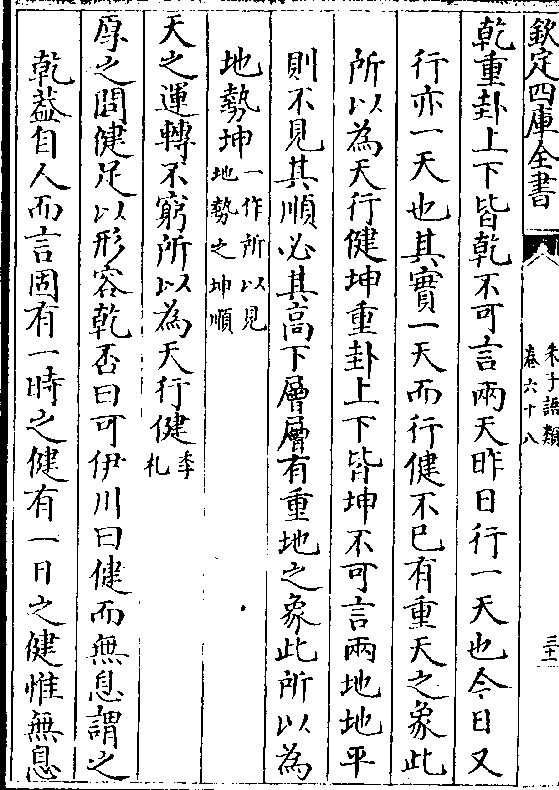 欽定四庫全書
朱子語類
卷六十八
三十一
乾重卦上下皆乾不可言兩天昨日行一天也今日又
行亦一天也其實一天而行健不已有重天之象此
所以為天行健坤重卦上下皆坤不可言兩地地平
則不見其順必其高下層層有重地之象此所以為
地勢坤一作所以見地勢之坤順
天之運轉不窮所以為天行健季札
厚之問健足以形容乾否曰可伊川曰健而無息謂之
乾蓋自人而言固有一時之健有一日之健惟無息